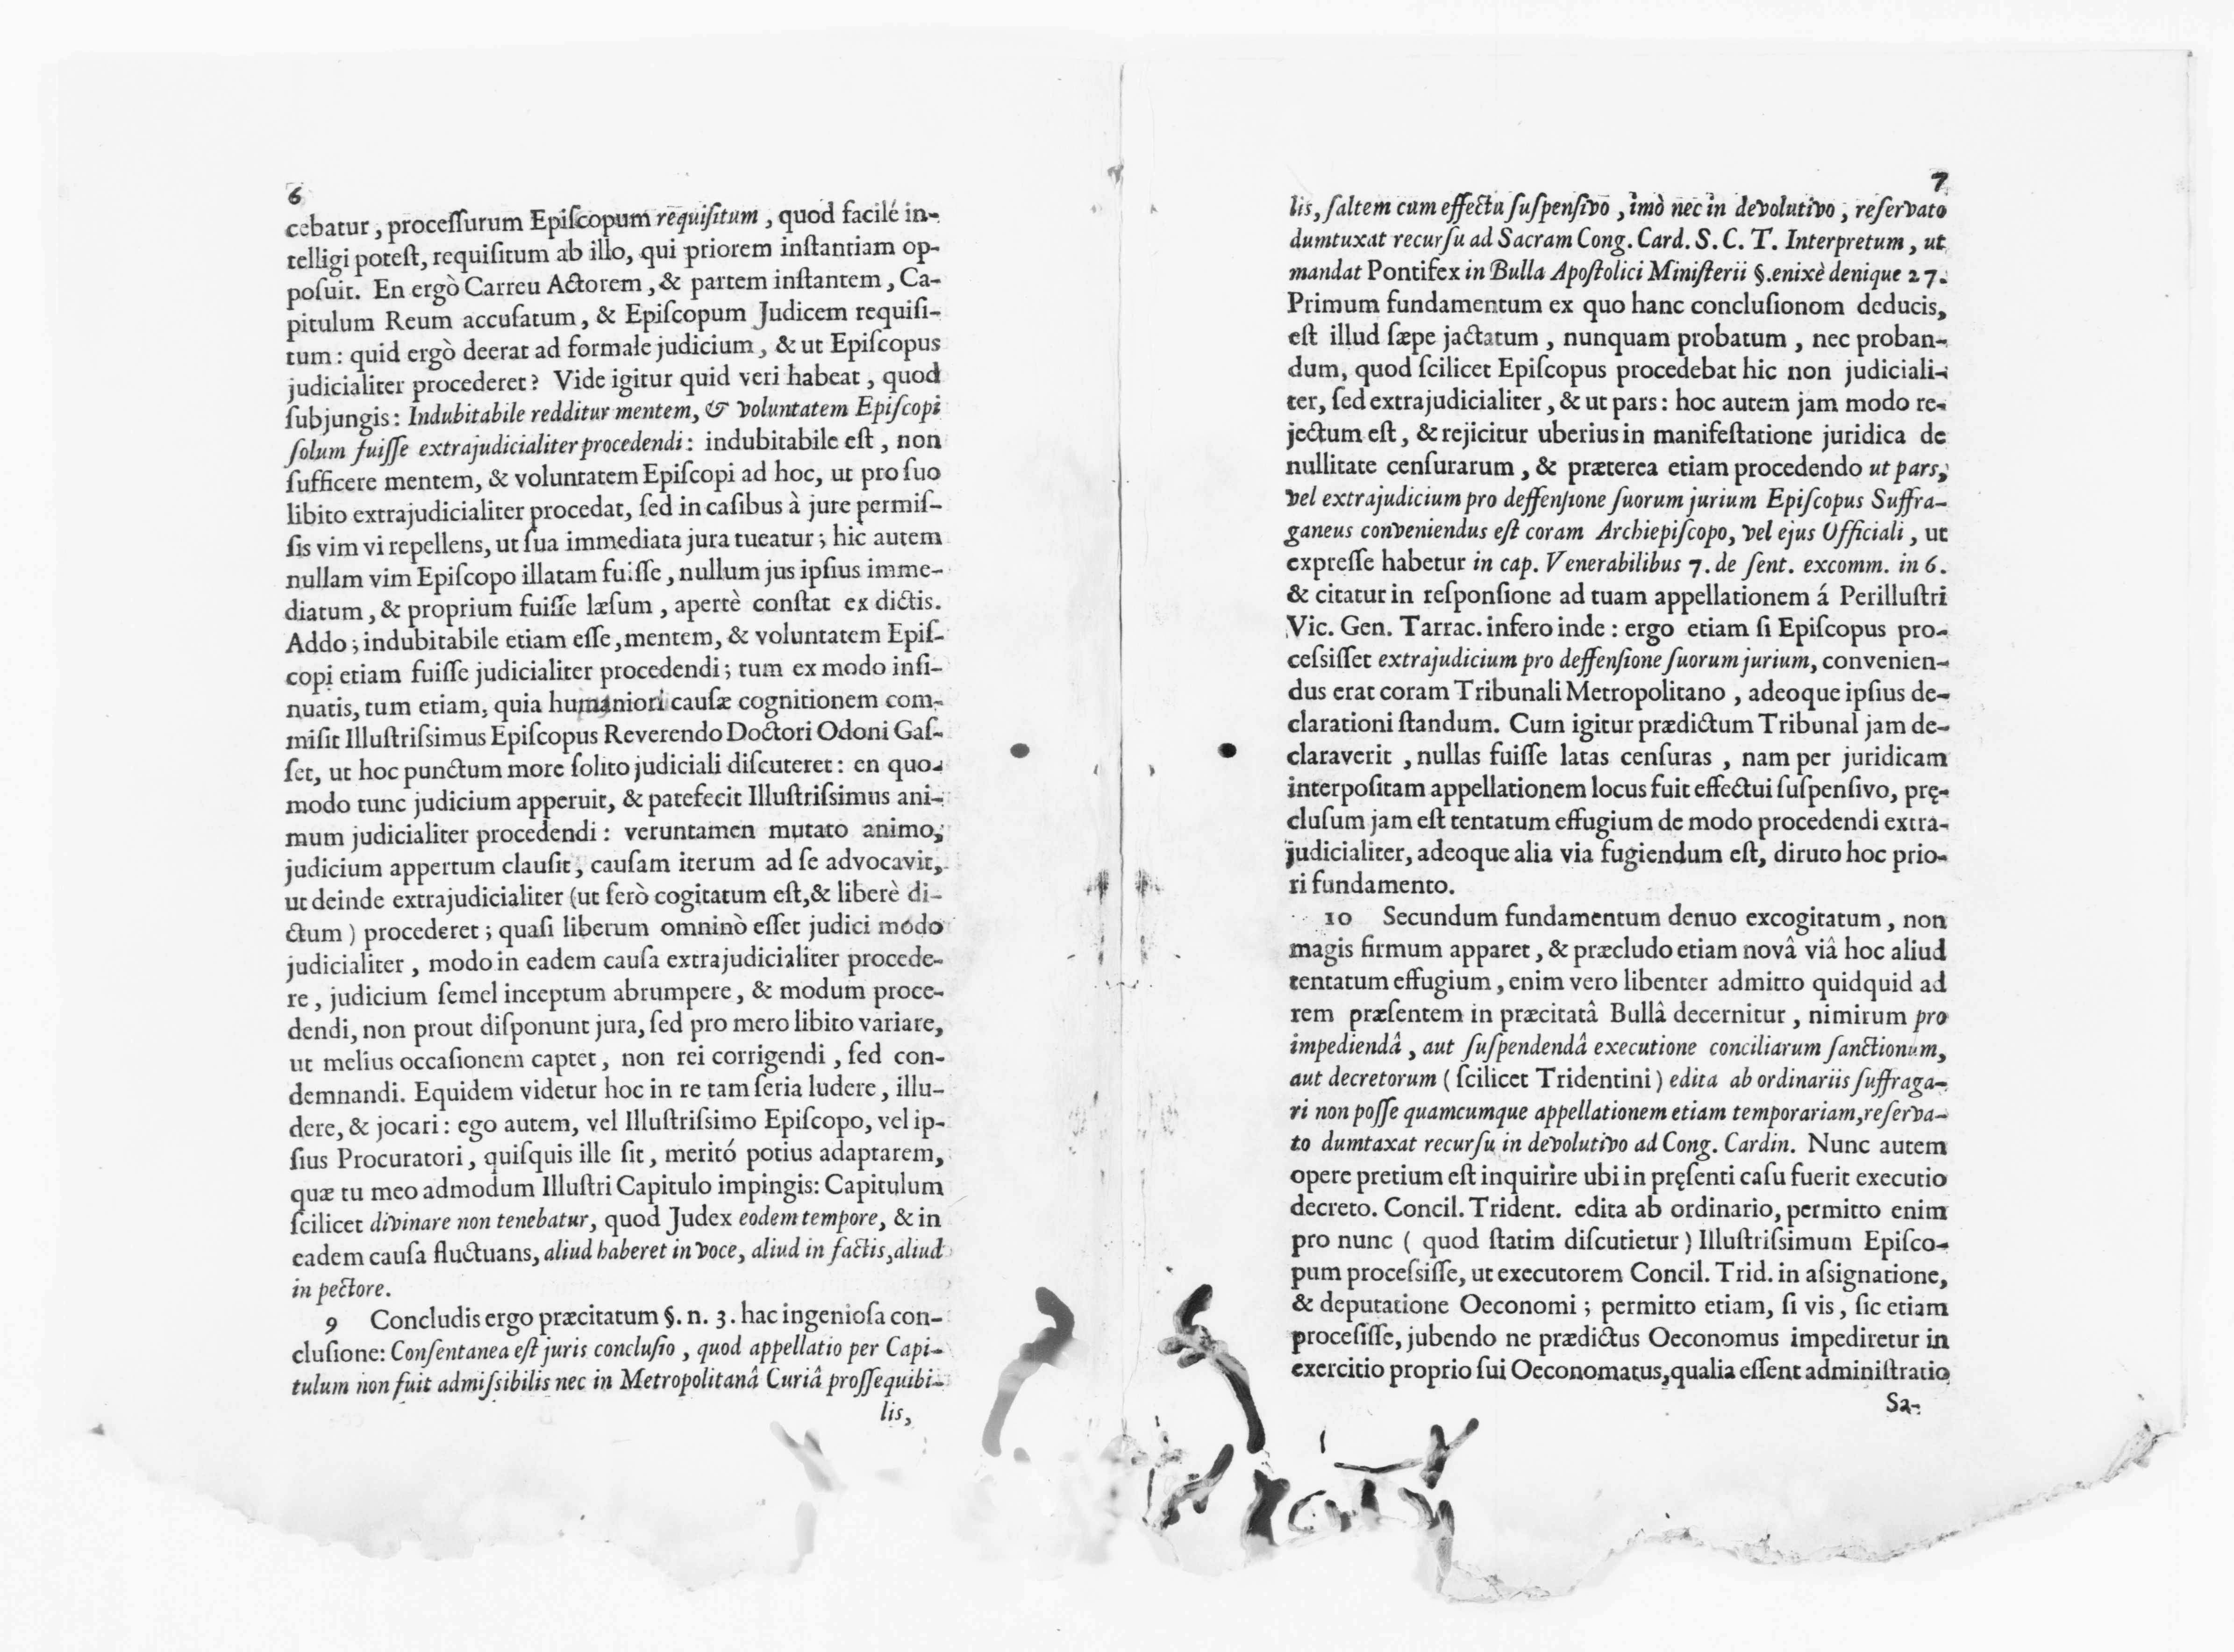 6
cebatur, proceſſurum Epiſcopum requiſitum, quod facilé in-
telligi poteſt, requiſitum ab illo, qui priorem inſtantiam op-
poſuit. En ergò Carreu Actorem, & partem inſtantem, Ca-
pitulum Reum accuſatum, & Epiſcopum Judicem requiſi-
tum: quid ergò deerat ad formale judicium, & ut Epiſcopus
judicialiter procederet? Vide igitur quid veri habeat, quod
ſubjungis: Indubitabile redditur mentem, & voluntatem Epiſcopi
ſolum fuiſſe extrajudicialiter procedendi: indubitabile eſt, non
ſufficere mentem, & voluntatem Epiſcopi ad hoc, ut pro ſuo
libito extrajudicialiter procedat, ſed in caſibus à jure permiſ-
ſis vim vi repellens, ut ſua immediata jura tueatur; hic autem
nullam vim Epiſcopo illatam fuiſſe, nullum jus ipſius imme-
diatum, & proprium fuiſſe læſum, apertè conſtat ex dictis.
Addo; indubitabile etiam eſſe, mentem, & voluntatem Epiſ-
copi etiam fuiſſe judicialiter procedendi; tum ex modo inſi-
nuatis, tum etiam, quia humaniori cauſæ cognitionem com-
miſit Illuſtriſsimus Epiſcopus Reverendo Doctori Odoni Gaſ-
ſet, ut hoc punctum more ſolito judiciali diſcuteret: en quo-
modo tunc judicium apperuit, & patefecit Illuſtriſsimus ani-
mum judicialiter procedendi: veruntamen mutato animo,
judicium appertum clauſit, cauſam iterum ad ſe advocavit,
ut deinde extrajudicialiter (ut ſerò cogitatum eſt, & liberè di-
ctum) procederet; quaſi liberum omninò eſſet judici modo
judicialiter, modo in eadem cauſa extrajudicialiter procede-
re, judicium ſemel inceptum abrumpere, & modum proce-
dendi, non prout diſponunt jura, ſed pro mero libito variare,
ut melius occaſionem captet, non rei corrigendi, ſed con-
demnandi. Equidem videtur hoc in re tam ſeria ludere, illu-
dere, & jocari: ego autem, vel Illuſtriſsimo Epiſcopo, vel ip-
ſius Procuratori, quiſquis ille ſit, meritó potius adaptarem,
quæ tu meo admodum Illuſtri Capitulo impingis: Capitulum
ſcilicet divinare non tenebatur, quod Judex eodem tempore, & in
eadem cauſa fluctuans, aliud haberet in voce, aliud in factis, aliud
in pectore.
9 Concludis ergo præcitatum §. n. 3. hac ingenioſa con-
cluſione: Conſentanea eſt juris concluſio, quod appellatio per Capi-
tulum non fuit admiſsibilis nec in Metropolitanâ Curiâ proſſequibi-
lis,
7
lis, ſaltem cum effectu ſuſpenſivo, imò nec in devolutivo, reſervato
dumtuxat recurſu ad Sacram Cong. Card. S. C. T. Interpretum, ut
mandat Pontifex in Bulla Apoſtolici Miniſterii §. enixè denique 27.
Primum fundamentum ex quo hanc concluſionom deducis,
eſt illud ſæpe jactatum, nunquam probatum, nec proban-
dum, quod ſcilicet Epiſcopus procedebat hic non judiciali-
ter, ſed extrajudicialiter, & ut pars: hoc autem jam modo re-
jectum eſt, & rejicitur uberius in manifeſtatione juridica de
nullitate cenſurarum, & præterea etiam procedendo ut pars,
vel extrajudicium pro deffenſione ſuorum jurium Epiſcopus Suffra-
ganeus conveniendus eſt coram Archiepiſcopo, vel ejus Officiali, ut
expreſſe habetur in cap. Venerabilibus 7. de ſent. excomm. in 6.
& citatur in reſponſione ad tuam appellationem á Perilluſtri
Vic. Gen. Tarrac. infero inde: ergo etiam ſi Epiſcopus pro-
ceſsiſſet extrajudicium pro deffenſione ſuorum jurium, convenien-
dus erat coram Tribunali Metropolitano, adeoque ipſius de-
clarationi ſtandum. Cum igitur prædictum Tribunal jam de-
claraverit, nullas fuiſſe latas cenſuras, nam per juridicam
interpoſitam appellationem locus fuit effectui ſuſpenſivo, prę-
cluſum jam eſt tentatum effugium de modo procedendi extra-
judicialiter, adeoque alia via fugiendum eſt, diruto hoc prio-
ri fundamento.
10 Secundum fundamentum denuo excogitatum, non
magis firmum apparet, & præcludo etiam novâ viâ hoc aliud
tentatum effugium, enim vero libenter admitto quidquid ad
rem præſentem in præcitatâ Bullâ decernitur, nimirum pro
impediendâ, aut ſuſpendendâ executione conciliarum ſanctionum,
aut decretorum (ſcilicet Tridentini) edita ab ordinariis ſuffraga-
ri non poſſe quamcumque appellationem etiam temporariam, reſerva-
to dumtaxat recurſu in devolutivo ad Cong. Cardin. Nunc autem
opere pretium eſt inquirire ubi in pręſenti caſu fuerit executio
decreto. Concil. Trident. edita ab ordinario, permitto enim
pro nunc ( quod ſtatim diſcutietur) Illuſtriſsimum Epiſco-
pum proceſsiſſe, ut executorem Concil. Trid. in aſsignatione,
& deputatione Oeconomi; permitto etiam, ſi vis, ſic etiam
proceſiſſe, jubendo ne prædictus Oeconomus impediretur in
exercitio proprio ſui Oeconomatus, qualia eſſent adminiſtratio
Sa-